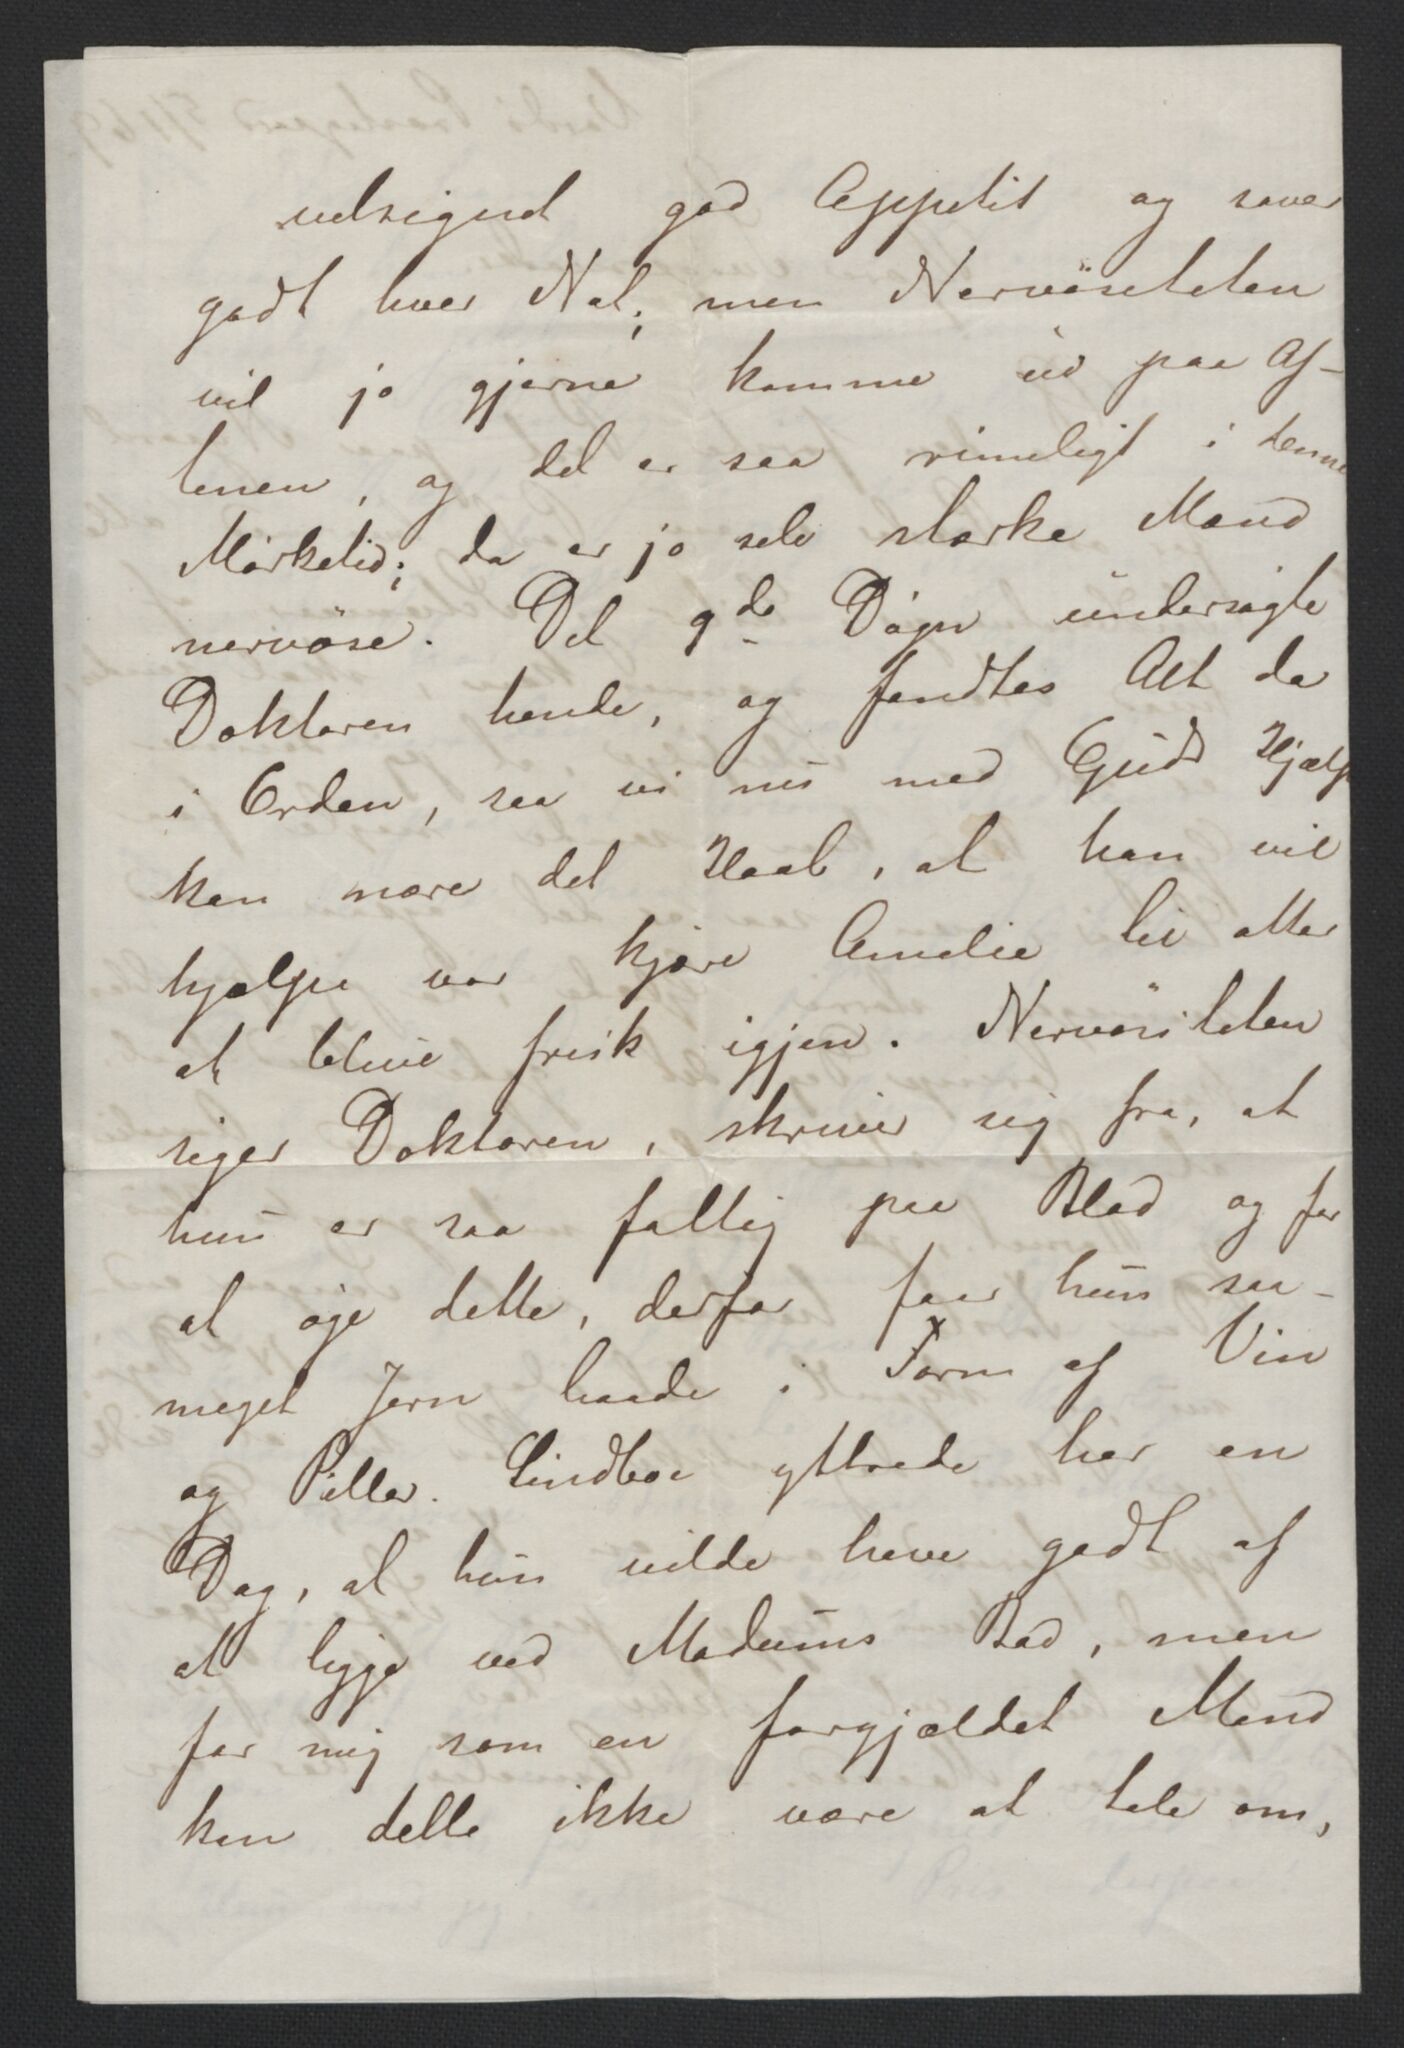 velsignet god Appetit og sover
godt hver Nat; men Nervösiteten
vil jo gjerne komme ud paa Af-
tenen, og det er saa rimeligt i denne
Mørketid; da er jo selv stærke Mænd
nervöse. Det 9de Døgn undersøgte
Doktoren hende, og fandtes Alt da
i Orden, saa vi nu med Guds Hjælp
kan nære det Haab, at han vil
hjælpe vor kjære Amelie til atter
at blive frisk igjen. Nervøsiteten
siger Doktoren, skriver sig fra, at
hun er saa fattig paa Blod og for
at øge dette, derfor faar hun saa-
meget Jern baade i Form af Vin
og Piller. Lindboe yttrede her en
Dag, at hun vilde have godt af
at ligge ved Modums Bad, men
for mig som en forgjældet Mand
kan dette ikke være at tale om,